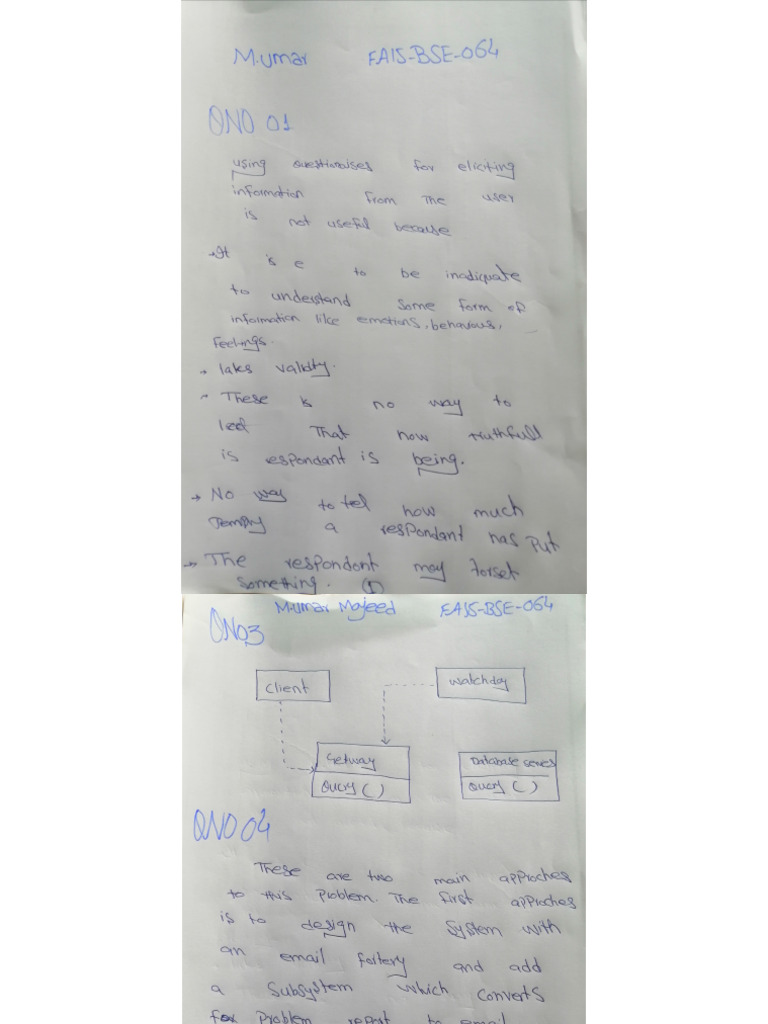 M.umar FA15-BSE-064
QNO 01
using questionaises for eliciting
information from The user
is not useful because
→ It is e to be inadiquate
to understand some form of
information like emotions, behaviours,
feelings.
→ laks validty.
→ These is no way to
That how truthfull
is espondant is being.
→ No way to tel how much
a respondant has put
→ The respondont may forset
something. (1)
M.umar Majeed FA15-BSE-064
QNO3
Client
watchdog
Getway
Query ( )
Database serves
Query ( )
QNO 04
These are two main approches
to this Problem. The first approches
is to design the System with
an email and add
a Subsystem which converts
Problem report to email